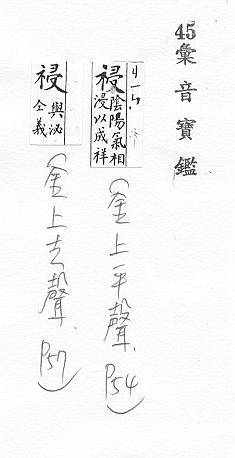 45彙音寶鑑
祲 陰陽氣相
浸以成祥
(金上平聲. P54)
祲 與泌
仝義
(金上去聲. P57)